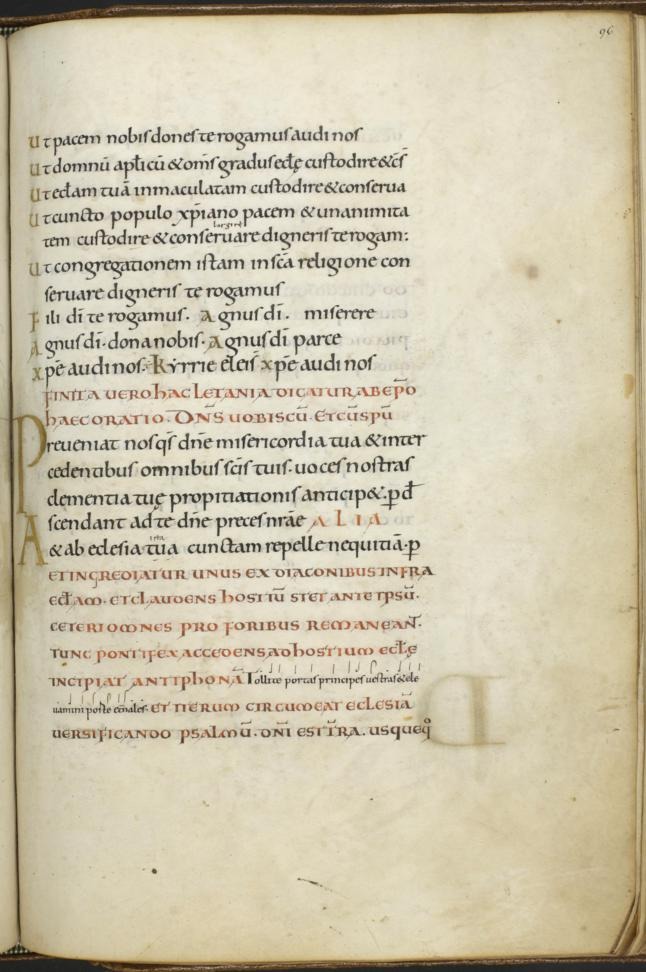 96
Ut pacem nobis dones te rogamus audi nos
Ut domnū apl̄icū & om̄s gradus eclę custodire & c̄s
Ut ecl̄am tuā inmaculatam custodire & conserva
Ut cuncto populo xp̄iano pacem & unanimita
largiri
tem custodire & conseruare digneris te rogam:
Ut congregationem istam in sc̄a religione con
seruare digneris te rogamus
Fili dī te rogamus. Agnus dī. miserere
Agnus dī. dona nobis. Agnus dī parce
xp̄e audi nos. Kyrrie eleis̄ xp̄e audi nos
FINITA UERO hAC LETANIA DICATUR AB EP̄O
hAEC ORATIO. DN̄S UOBISCŪ. ET CŪ SPŪ
Preueniat nos qs̄ dn̄e misericordia tua & inter
cedentibus omnibus sc̄is tuis. uoces nostras
clementia tuę propitiationis anticip&. p̄ d̄
Ascendant ad te dn̄e preces nr̄ae ALIA
& ab eclesia tūa cunctam repelle nequitiā. p̄
ET INGREDIATUR UNUS EX DIACONIBUS INFRA
ECL̄AM. ET CLAUDENS hOSTIŪ STET ANTE IPSŪ.
CETERI OMNES PRO FORIBUS REMANEANT̄.
TUNC PONTIFEX ACCEDENS AD hOSTIUM ECL̄Ę
INCIPIAT ANTIPHONĀ Tollite portas principes uestras & ele
uamini porte et̄nales. ET ITERUM CIRCUMEAT ECLESIĀ
UERSIFICANDO PSALMŪ. DNI EST T̄RA. USQUEq̊